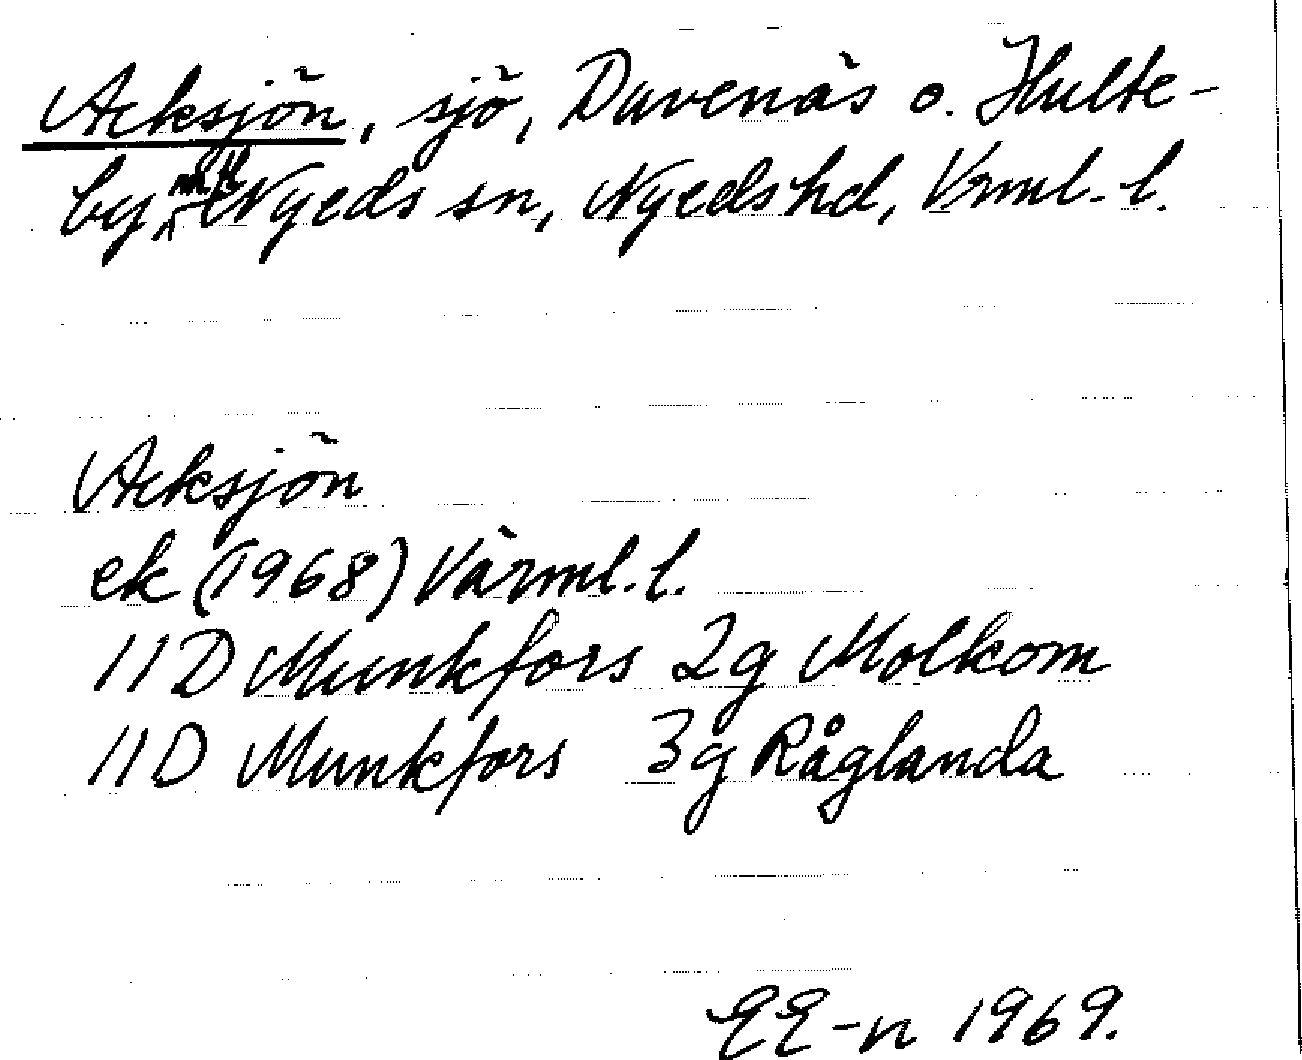 Acksjön, sjö, Davenäs o. Hulte-
by, Nyeds sn, Nyeds hd, Vrml. l.
Acksjön
ek (1968) Värml. l.
11D Munkfors 2g Molkom
11D Munkfors 3g Råglanda
EE-n 1969.